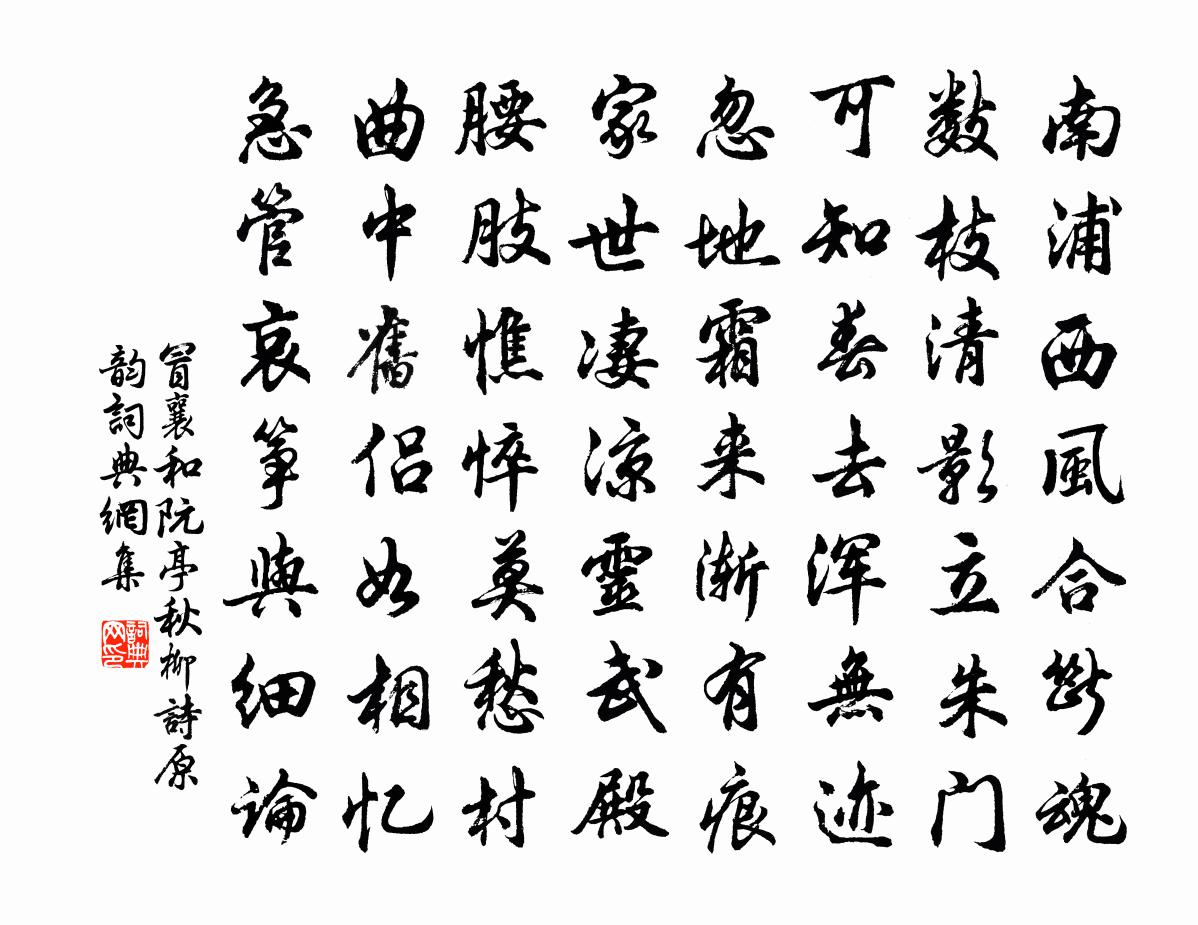 南浦西風合斷魂
數枝清影立朱门
可知春去浑無迹
忽地霜来渐有痕
家世凄涼靈武殿
腰肢憔悴莫愁村
曲中舊侣如相忆
急管哀筝與细論
冒襄和阮亭秋柳詩原
韵詞典網集
詞典网印